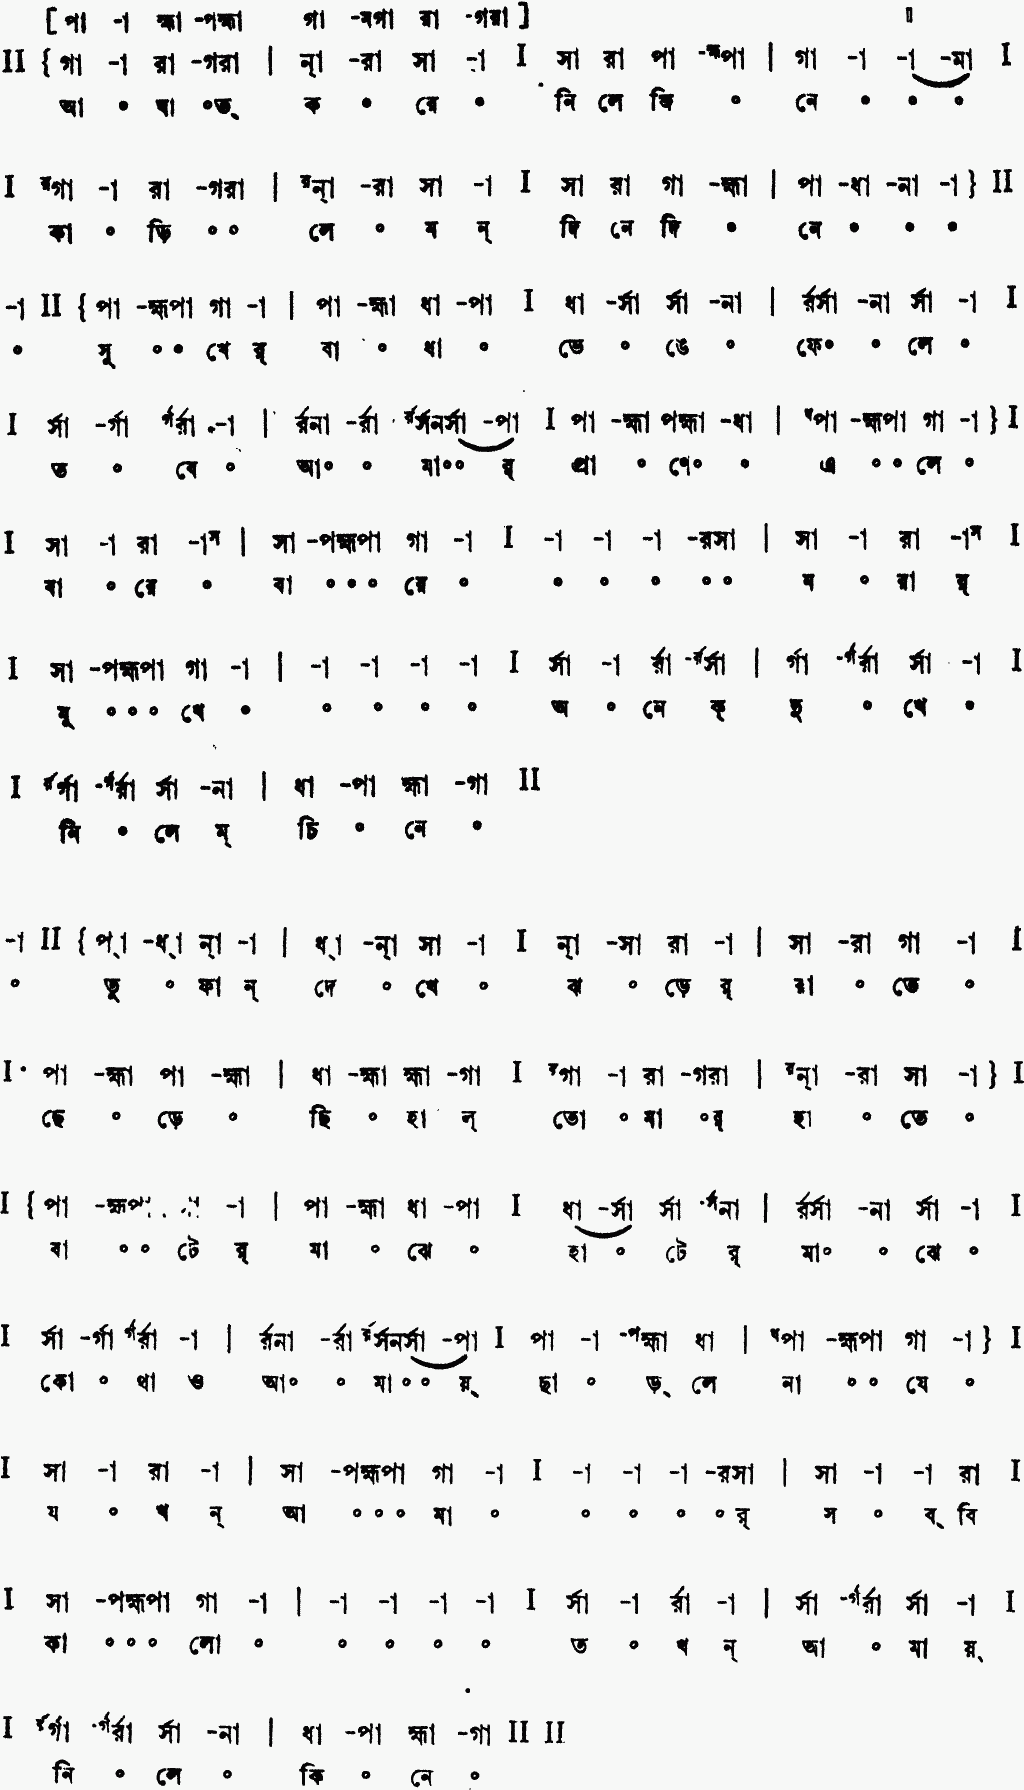 [ পা -া হ্মা -পহ্মা গা -মগা রা -গরা ]
II { গা -া রা -গরা | ন্‌া -রা সা -া I সা রা পা -হ্মপা | গা -া -া -মা I
আ ॰ ঘা ॰ত্‌ ক ॰ রে ॰ নি লে জি ॰ নে ॰ ॰ ॰
I রগা -া রা -গরা | রন্‌া -রা সা -া I সা রা গা -হ্মা | পা -ধা -না -া } II
কা ॰ ড়ি ॰ ॰ লে ॰ ম ন্‌ দি নে দি ॰ নে ॰ ॰ ॰
-া II { পা -হ্মপা গা -া | পা -হ্মা ধা -পা I ধা -র্সা র্সা -না | র্রর্সা -না র্সা -া I
॰ সু ॰ ॰ খে র্‌ বা ॰ ধা ॰ ভে ॰ ঙে ॰ ফে॰ ॰ লে ॰
I র্সা -র্গা র্গর্রা -া | র্রনা -র্রা র্রর্সনর্সা -পা I পা -হ্মা পহ্মা -ধা | ধপা -হ্মপা গা -া } I
ত ॰ বে ॰ আ॰ ॰ মা॰॰ র্‌ প্রা ॰ ণে॰ ॰ এ ॰ ॰ লে ॰
I সা -া রা -াস | সা -পহ্মপা গা -া I -া -া -া -রসা | সা -া রা -াস I
বা ॰ রে ॰ বা ॰ ॰ ॰ রে ॰ ॰ ॰ ॰ ॰ ॰ ম ॰ রা র্‌
I সা -পহ্মপা গা -া | -া -া -া -া I র্সা -া র্রা -র্রর্সা | র্গা -র্গর্রা র্সা -া I
মু ॰ ॰ ॰ খে ॰ ॰ ॰ ॰ ॰ অ ॰ নে ক্‌ দু ॰ খে ॰
I র্রর্গা -র্গর্রা র্সা -না | ধা -পা হ্মা -গা II
নি ॰ লে ম্‌ চি ॰ নে ॰
-া II { প্‌া -ধ্‌া ন্‌া -া | ধ্‌া -ন্‌া সা -া I ন্‌া -সা রা -া | সা -রা গা -া I
॰ তু ॰ ফা ন্‌ দে ॰ খে ॰ ঝ ॰ ড়ে র্‌ রা ॰ তে ॰
I পা -হ্মা পা -হ্মা | ধা -হ্মা হ্মা -গা I রগা -া রা -গরা | রন্‌া -রা সা -া } I
ছে ॰ ড়ে ॰ ছি ॰ হা ল্‌ তো ॰ মা ॰র্‌ হা ॰ তে ॰
I { পা -হ্মপা -া | পা -হ্মা ধা -পা I ধা -র্সা র্সা -র্সনা | র্রর্সা -না র্সা -া I
বা ॰ ॰ টে র্‌ মা ॰ ঝে ॰ হা ॰ টে র্‌ মা॰ ॰ ঝে ॰
I র্সা -র্গা র্গর্রা -া | র্রনা -র্রা র্রর্সনর্সা -পা I পা -া -পহ্মা ধা | ধপা -হ্মপা গা -া } I
কো ॰ থা ও আ॰ ॰ মা॰॰ য়্‌ ছা ॰ ড়্‌ লে না ॰ ॰ যে ॰
I সা -া রা -া | সা -পহ্মপা গা -া I -া -া -া -রসা | সা -া -া রা I
য ॰ খ ন্‌ আ ॰ ॰ ॰ মা ॰ ॰ ॰ ॰ ॰ র্‌ স ॰ ব্‌ বি
I সা -পহ্মপা গা -া | -া -া -া -া I র্সা -া র্রা -া | র্সা -র্গর্রা র্সা -া I
কা ॰ ॰ ॰ লো ॰ ॰ ॰ ॰ ॰ ত ॰ খ ন্‌ আ ॰ মা য়্‌
I র্রর্গা -র্গর্রা র্সা -না | ধা -পা হ্মা -গা II II
নি ॰ লে ॰ কি ॰ নে ॰